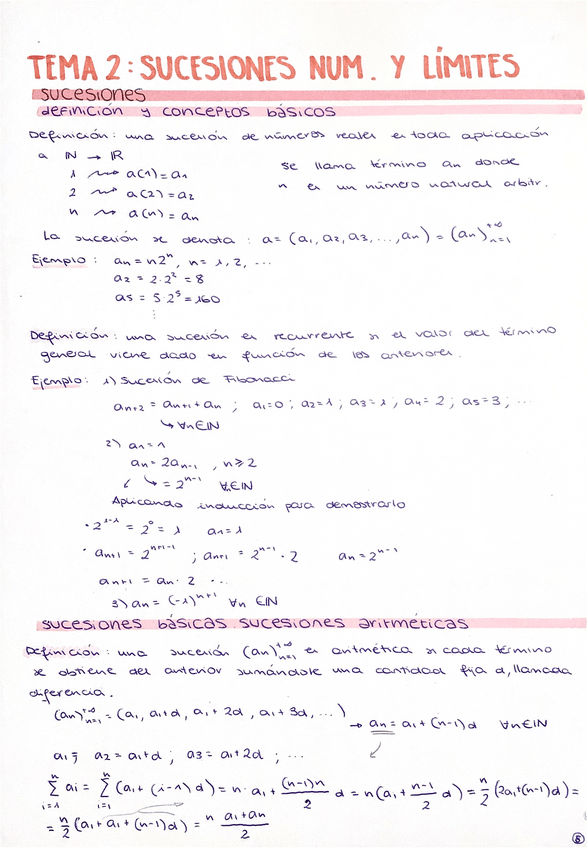 TEMA 2: SUCESIONES NUM. Y LÍMITES
sucesiones
definición y conceptos básicos
Definición: una sucesión de números reales es toda aplicación
a ℕ → ℝ
1 ⇝ a(1) = a₁
2 ⇝ a(2) = a₂
n ⇝ a(n) = aₙ
se llama término aₙ donde
n es un número natural arbitr.
La sucesión se denota: a = (a₁, a₂, a₃, ..., aₙ) = (aₙ)ₙ₌₁⁺∞
Ejemplo: aₙ = n2ⁿ, n = 1, 2, ...
a₂ = 2·2² = 8
a₅ = 5·2⁵ = 160
⋮
Definición: una sucesión es recurrente si el valor del término
general viene dado en función de los anteriores.
Ejemplo: 1) Sucesión de Fibonacci
aₙ₊₂ = aₙ₊₁ + aₙ ; a₁=0 ; a₂=1 ; a₃=1 ; a₄=2 ; a₅=3 ; ...
↳ ∀n∈ℕ
2) a₁ = 1
aₙ = 2aₙ₋₁ , n ≥ 2
↳ = 2ⁿ⁻¹ ∀∈ℕ
Aplicando inducción para demostrarlo
· 2¹⁻¹ = 2⁰ = 1 a₁ = 1
· aₙ₊₁ = 2ⁿ⁺¹⁻¹ ; aₙ₊₁ = 2ⁿ⁻¹ · 2 aₙ = 2ⁿ⁻¹
aₙ₊₁ = aₙ · 2 ...
3) aₙ = (-1)ⁿ⁺¹ ∀n ∈ℕ
sucesiones básicas. sucesiones aritméticas
Definición: una sucesión (aₙ)ₙ₌₁⁺∞ es aritmética si cada término
se obtiene del anterior sumándole una cantidad fija d, llamada
diferencia.
(aₙ)ₙ₌₁⁺∞ = (a₁, a₁+d, a₁+2d, a₁+3d, ...) → aₙ = a₁ + (n-1)d ∀n∈ℕ
a₁ ; a₂ = a₁+d ; a₃ = a₁+2d ; ...
∑ᵢ₌₁ⁿ aᵢ = ∑ᵢ₌₁ⁿ (a₁ + (i-1)d) = n·a₁ + (n-1)n/2 d = n(a₁ + n-1/2 d) = n/2 (2a₁+(n-1)d) =
= n/2 (a₁ + a₁ + (n-1)d) = n a₁+aₙ/2